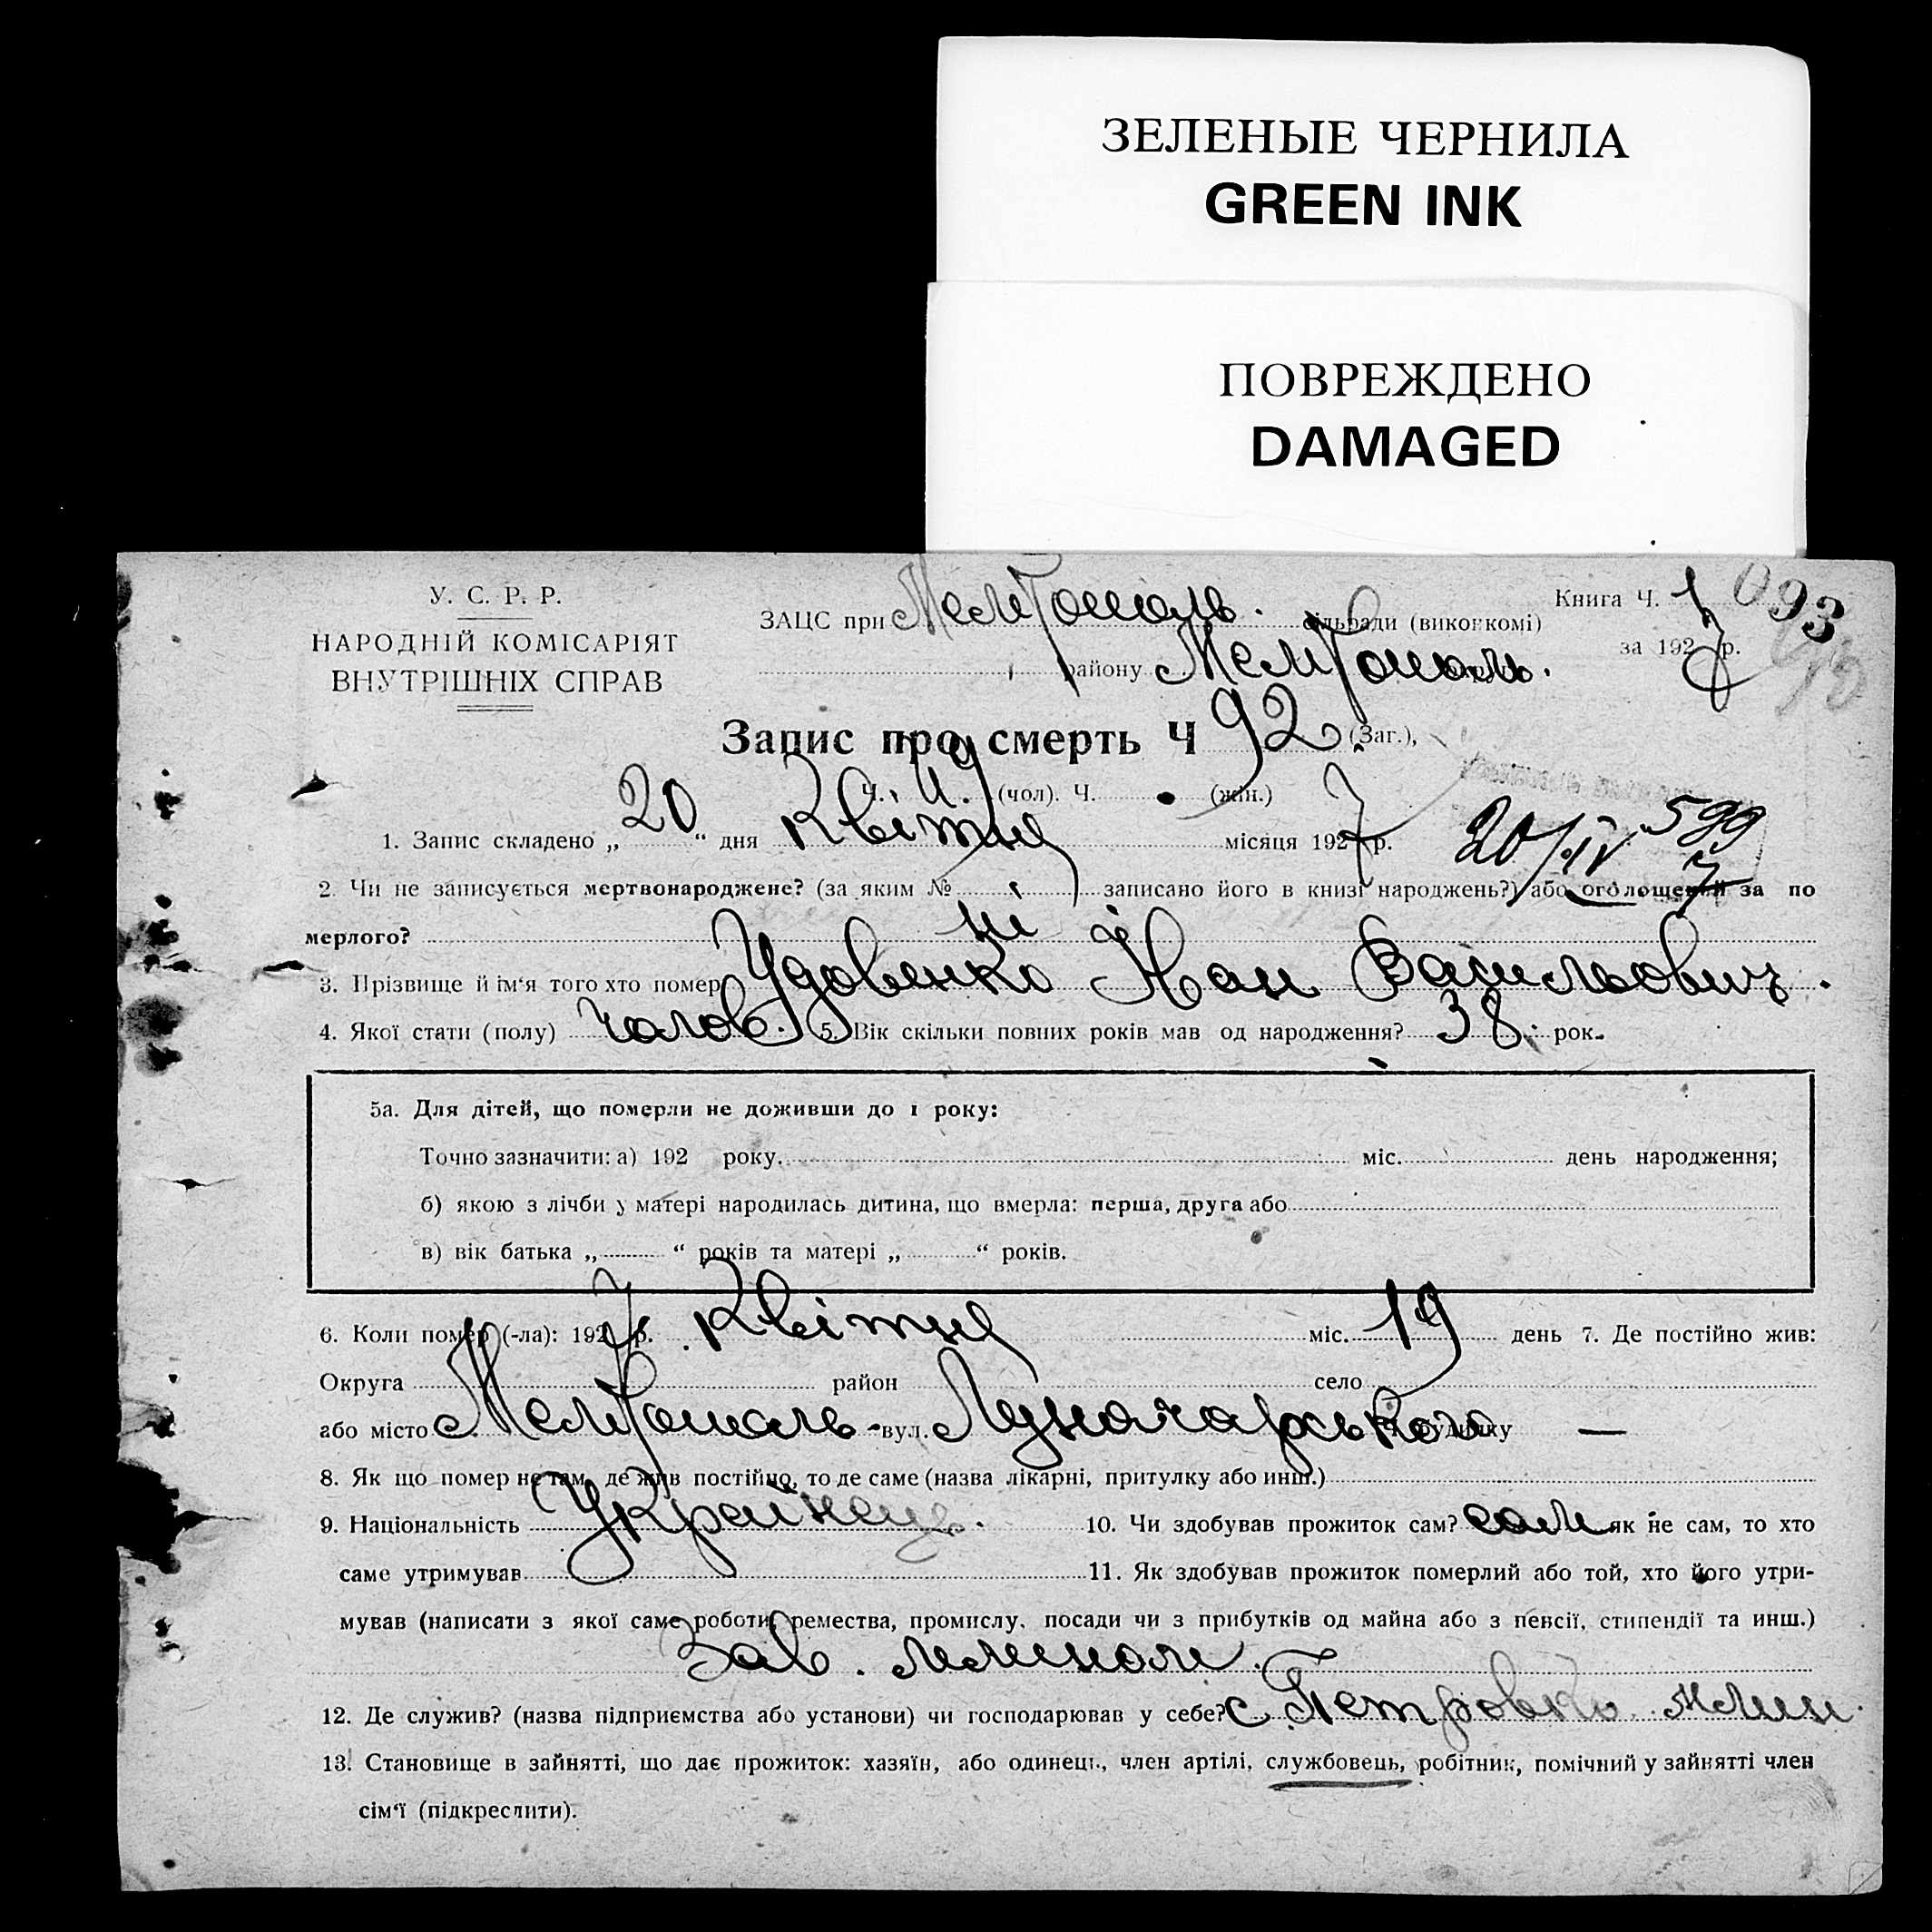 ЗЕЛЕНЫЕ ЧЕРНИЛА
GREEN INK
ПОВРЕЖДЕНО
DAMAGED
У. С. Р. Р.
НАРОДНІЙ КОМІСАРІЯТ
ВНУТРІШНІХ СПРАВ
ЗАЦС при Мелітополь. сільради (виконкомі)
району Мелітополь.
Книга Ч. 1 093
за 1927 р.
Запис про смерть Ч 92. (Заг.),
Ч. 49 (чол). Ч. (жін.)
1. Запис складено „20“ дня Квітня місяця 1927 р. 20/IV 599
2. Чи не записується мертвонароджене? (за яким № записано його в книзі народжень?) або оголошений за по
мерлого? ні
3. Прізвище й ім‘я того хто помер Удовенко Йван Васильович.
4. Якої стати (полу) чолов. 5. Вік скільки повних років мав од народження? 38 рок.
5а. Для дітей, що померли не доживши до 1 року:
Точно зазначити: а) 192 року. міс. день народження;
б) якою з лічби у матері народилась дитина, що вмерла: перша, друга або
в) вік батька „ “ років та матері „ “ років.
6. Коли помер (-ла): 1927 р. Квітня міс. 19 день 7. Де постійно жив:
Округа район село
або місто Мелітополь вул. Луначарського будинку —
8. Як що помер не там, де жив постійно, то де саме (назва лікарні, притулку або инш.)
9. Національність Українець. 10. Чи здобував прожиток сам? сам як не сам, то хто
саме утримував 11. Як здобував прожиток померлий або той, хто його утри-
мував (написати з якої саме роботи, ремества, промислу, посади чи з прибутків од майна або з пенсії, стипендії та инш.)
Зав. млином.
12. Де служив? (назва підприємства або установи) чи господарював у себе? с. Петровка млин.
13. Становище в зайнятті, що дає прожиток: хазяїн, або одинець, член артілі, службовець, робітник, помічний у зайнятті член
сім‘ї (підкреслити).